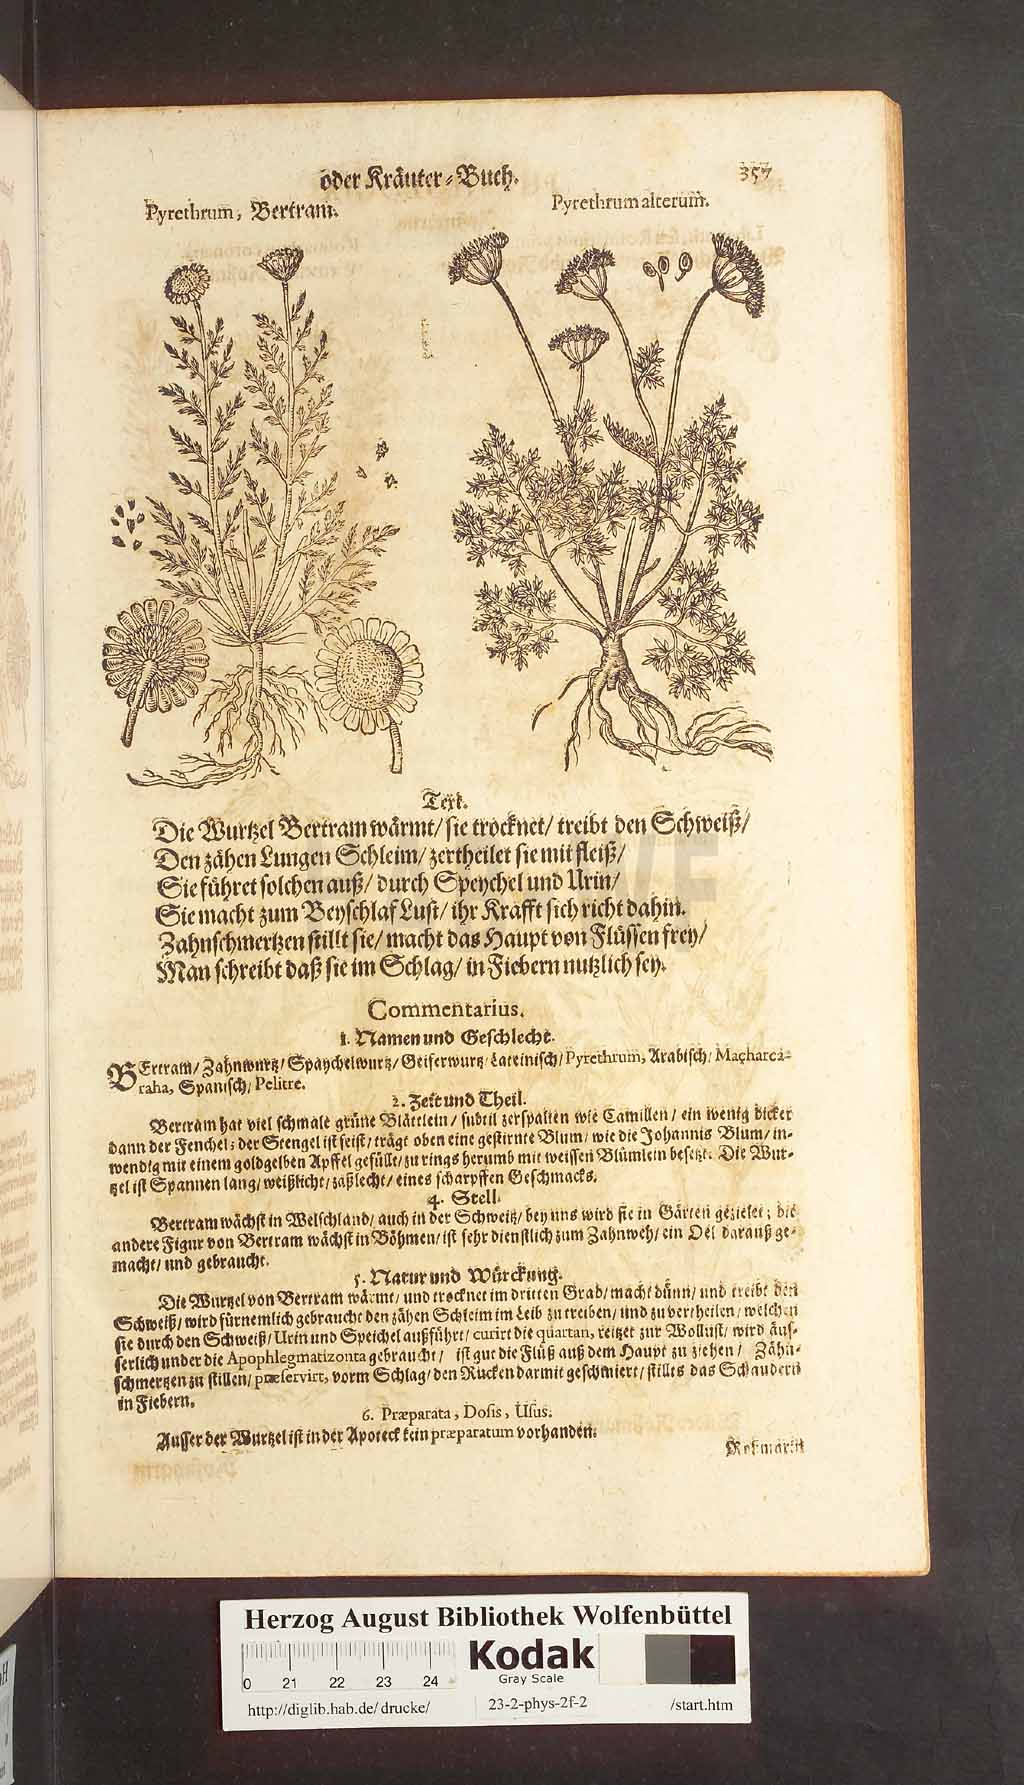 oder Kräuter-Buch.
357
Pyrethrum, Bertram.
Pyrethrum alterum.
Text.
Die Wurtzel Bertram wärmt/ sie trocknet/ treibt den Schweiß/
Den zähen Lungen Schleim/ zertheilet sie mit fleiß/
Sie führet solchen auß/ durch Speychel und Urin/
Sie macht zum Beyschlaf Lust/ ihr Krafft sich richt dahin.
Zahnschmertzen stillt sie/ macht das Haupt von Flüssen frey/
Man schreibt daß sie im Schlag/ in Fiebern nutzlich sey.
Commentarius.
1. Namen und Geschlecht.
BErtram/ Zahnwurtz/ Spaychelwurtz/ Geiferwurtz/ Lateinisch/ Pyrethrum, Arabisch/ Macharca-
raha, Spanisch/ Pelitre.
2. Zeit und Theil.
Bertram hat viel schmale grüne Blättlein/ subtil zerspalten wie Camillen/ ein wenig dicker
dann der Fenchel; der Stengel ist feist/ trägt oben eine gestirnte Blum/ wie die Johannis Blum/ in-
wendig mit einem goldgelben Apffel gefüllt/ zu rings herumb mit weissen Blümlein besetzt. Die Wur-
tzel ist Spannen lang/ weißlicht/ zaßlecht/ eines scharpffen Geschmacks.
4. Stell.
Bertram wächst in Welschland/ auch in der Schweitz/ bey uns wird sie in Gärten gezielet; die
andere Figur von Bertram wächst in Böhmen/ ist sehr dienstlich zum Zahnweh/ ein Oel darauß ge-
macht/ und gebraucht.
5. Natur und Würckung.
Die Wurtzel von Bertram wärmt/ und trocknet im dritten Grad/ macht dünn/ und treibt den
Schweiß/ wird fürnemlich gebraucht den zähen Schleim im Leib zu treiben/ und zu vertheilen/ welchen
sie durch den Schweiß/ Urin und Speichel außführt/ curirt die quartan, reitzet zur Wollust/ wird äus-
serlich under die Apophlegmatizonta gebraucht/ ist gut die Flüß auß dem Haupt zu ziehen/ Zähn-
schmertzen zu stillen/ præservirt, vorm Schlag/ den Rucken darmit geschmiert/ stillts das Schaudern
in Fiebern.
6. Præparata, Dosis, Usus.
Ausser der Wurtzel ist in der Apoteck kein præparatum vorhanden.
Roßmarin
Herzog August Bibliothek Wolfenbüttel
Kodak
Gray Scale
0 21 22 23 24
http://diglib.hab.de/drucke/ 23-2-phys-2f-2 /start.htm